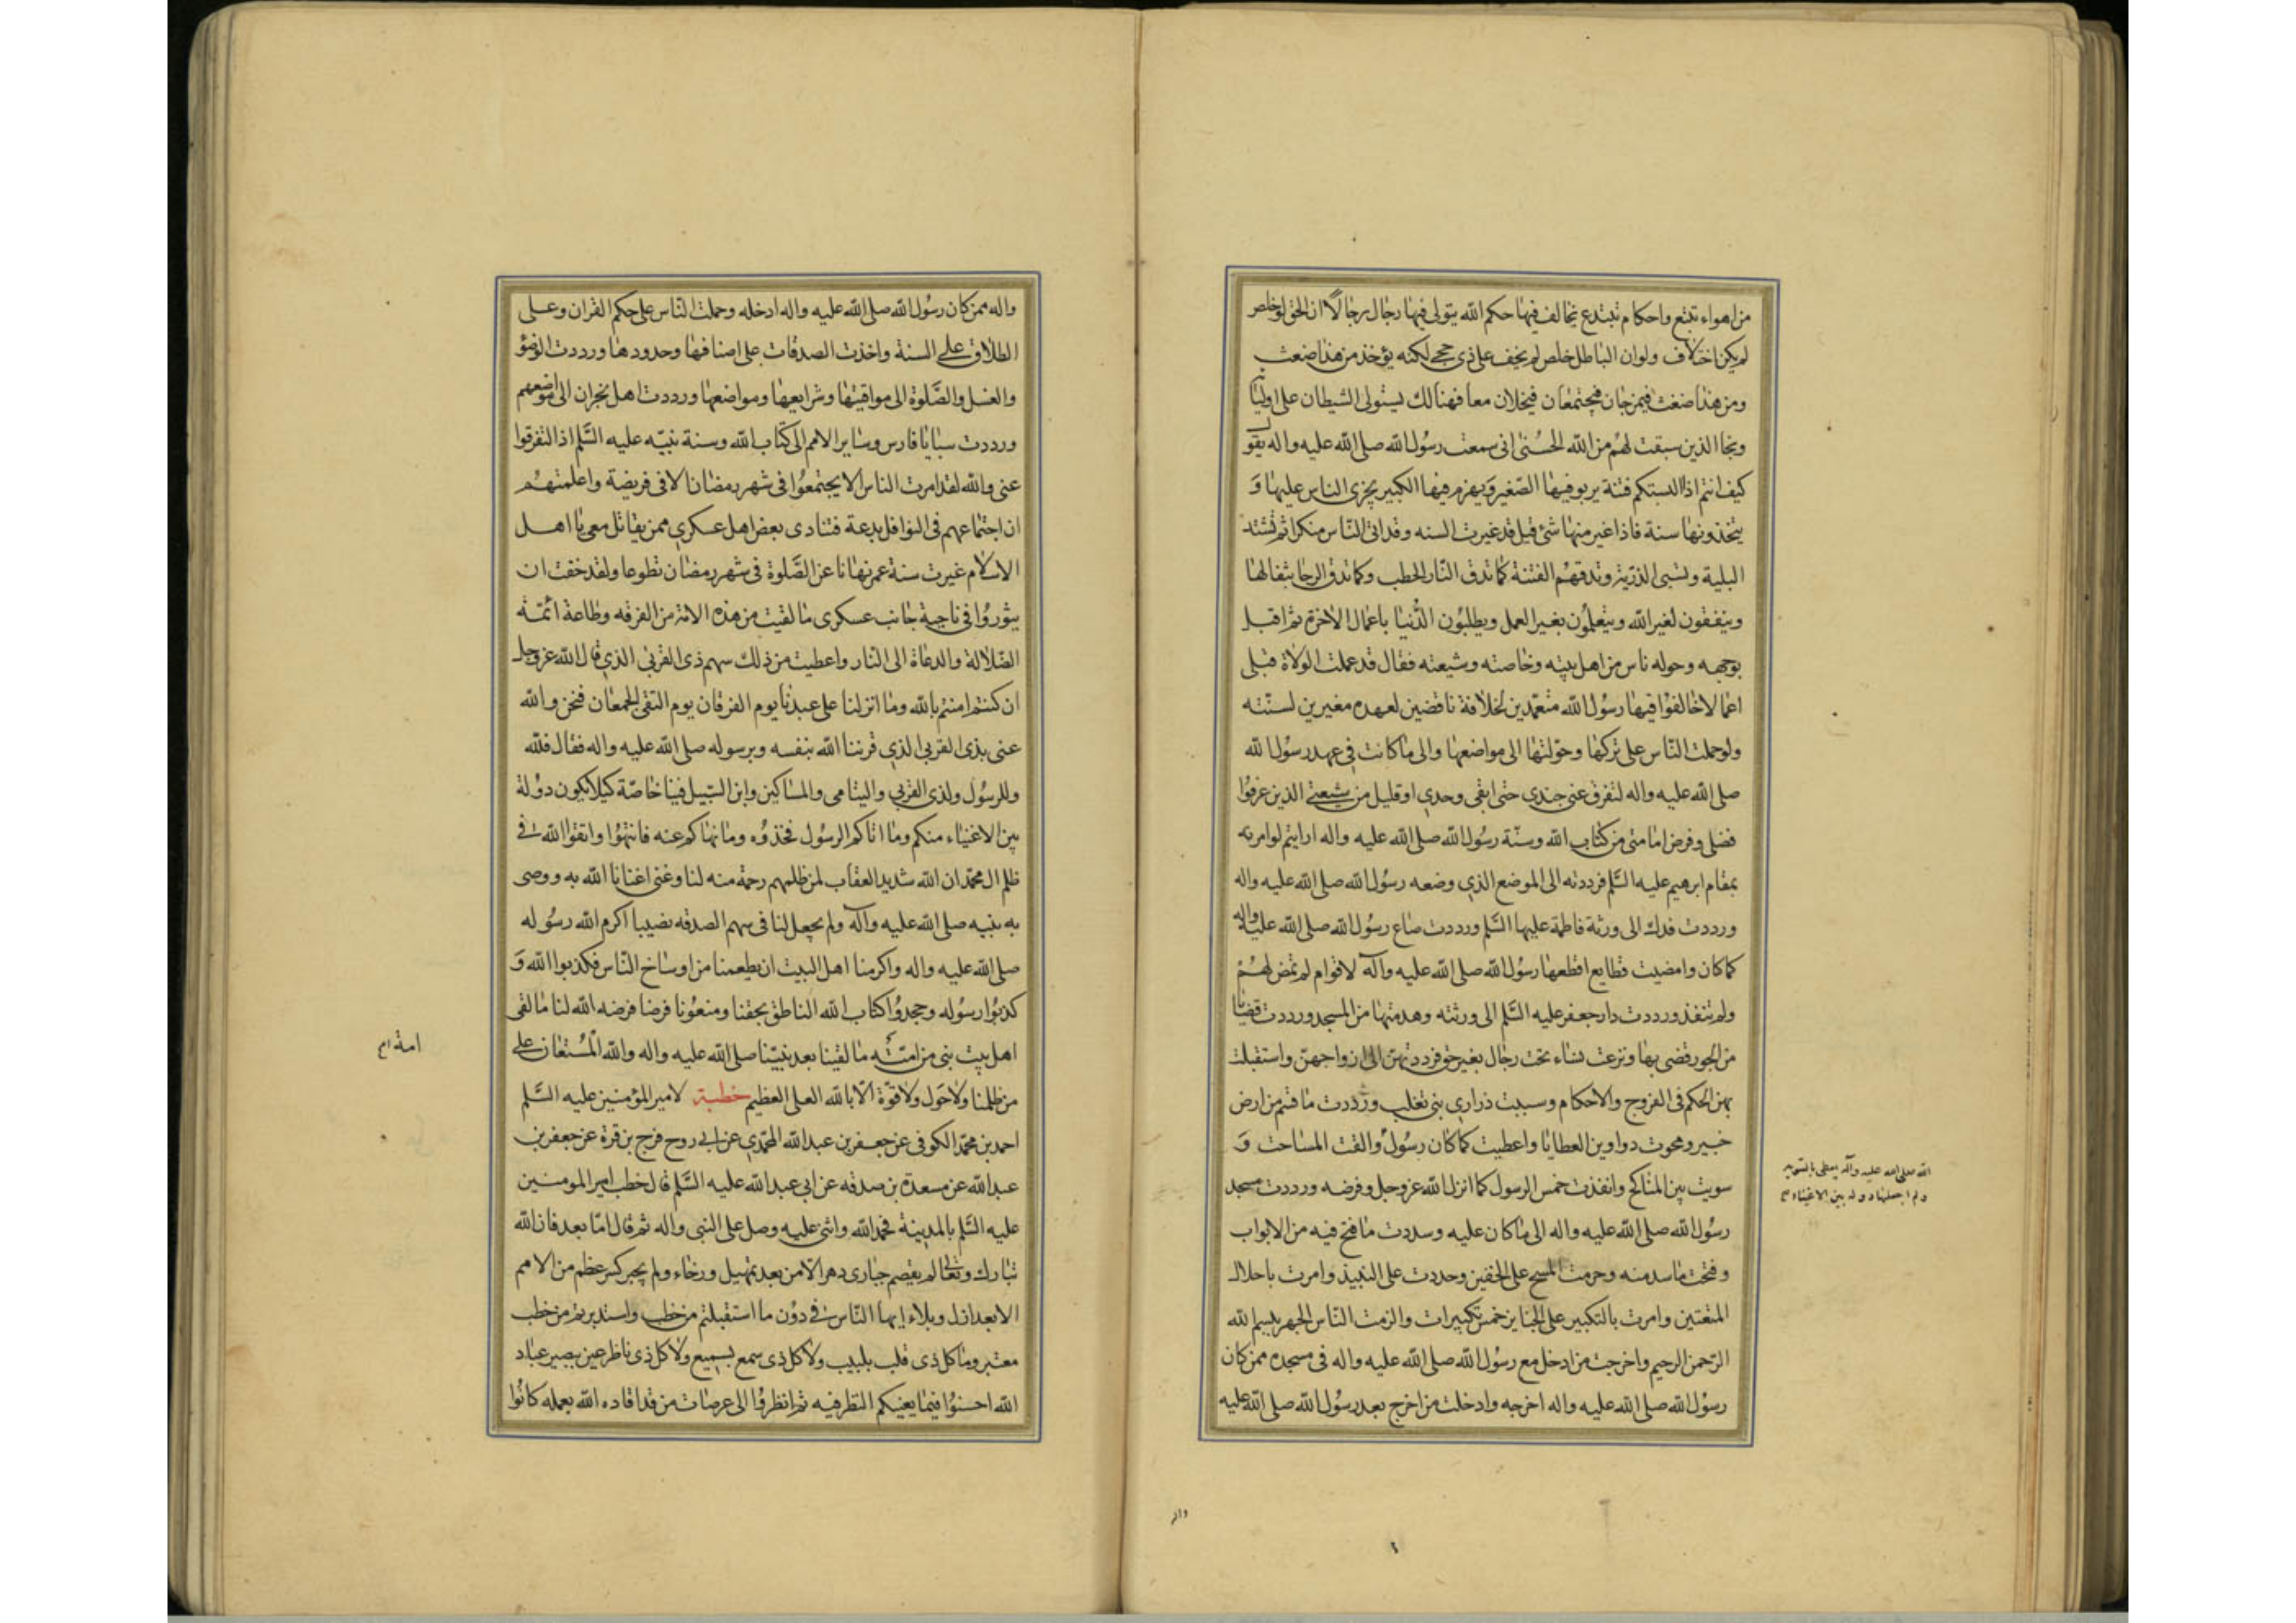 من اهواء تتبع واحكام تبتدع يخالف فيها حكم الله يتولى فيها رجال رجالا الا ان الحق لو خلص
لم يكن اختلاف ولو ان الباطل خلص لم يخف على ذي حجى لكنه يؤخذ من هذا ضغث
ومن هذا ضغث فيمزجان فيجتمعان فيجللان معا فهنالك يستولى الشيطان على اوليائه
ونجا الذين سبقت لهم من الله الحسنى انى سمعت رسول الله صلى الله عليه واله يقول
كيف انتم اذا البستكم فتنة يربو فيها الصغير ويهرم فيها الكبير يجرى الناس عليها و
يتخذونها سنة فاذا غير منها شئ قيل قد غيرت السنه وقد اتى الناس منكرا ثم تشتد
البلية وتسبى الذرية وتدقهم الفتنة كما تدق النار الحطب وكما تدق الرحا بثفالها
ويتفقهون لغير الله ويتعلمون بغير العمل ويطلبون الدنيا باعمال الاخرة ثم اقبل
بوجهه وحوله ناس من اهل بيته وخاصته وشيعته فقال قد عملت الولاة قبلى
اعمالا خالفوا فيها رسول الله متعمدين لخلافة ناقضين لعهده مغيرين لسنته
ولو حملت الناس على تركها وحولتها الى مواضعها والى ما كانت في عهد رسول الله
صلى الله عليه واله لتفرق عنى جندي حتى ابقى وحدي او قليل من شيعتي الذين عرفوا
فضلى وفرض امامتى من كتاب الله وسنة رسول الله صلى الله عليه واله ارايتم لو امرت
بمقام ابرهيم عليه السلم فرددته الى الموضع الذي وضعه رسول الله صلى الله عليه واله
ورددت فدك الى ورثة فاطمة عليها السلم ورددت صاع رسول الله صلى الله عليه واله
كما كان وامضيت قطايع اقطعها رسول الله صلى الله عليه وآله لاقوام لم تمض لهم
ولم تنفذ ورددت دار جعفر عليه السلم الى ورثته وهدمتها من المسجد ورددت قضايا
من الجور قضى بها ونزعت نساء تحت رجال بغير حق فرددتهن الى ازواجهن واستقبلت
بهن الحكم فى الفروج والاحكام وسبيت ذرارى بنى تغلب ورددت ما قسم من ارض
خيبر ومحوت دواوين العطايا واعطيت كما كان رسول والقت المساحت و
سويت بين المناكح وانفذت خمس الرسول كما انزل الله عز وجل وفرضه ورددت مسجد
رسول الله صلى الله عليه واله الى ما كان عليه وسددت ما فتح فيه من الابواب
وفتحت ما سد منه وحرمت المسح على الخفين وحددت على النبيذ وامرت باحلال
المتعتين وامرت بالتكبير على الجنايز خمس تكبيرات والزمت الناس الجهر ببسم الله
الرحمن الرحيم واخرجت من ادخل مع رسول الله صلى الله عليه واله فى مسجده ممن كان
رسول الله صلى الله عليه واله اخرجه وادخلت من اخرج بعد رسول الله صلى الله عليه
الله صلى الله عليه وآله يعطى بالسويه
ولم اجعلها دوله بين الاغنياء صح
واله
واله ممن كان رسول الله صلى الله عليه واله ادخله وحملت الناس على حكم القران وعلى
الطلاق على السنة واخذت الصدقات على اصنافها وحدودها ورددت الوضؤ
والغسل والصلوة الى مواقيتها وشرايعها ومواضعها ورددت اهل نجران الى مواضعهم
ورددت سبايا فارس وساير الامم الى كتاب الله وسنة نبيه عليه السلم اذا لتفرقوا
عنى والله لقد امرت الناس الا يجتمعوا فى شهر رمضان الا فى فريضة واعلمتهم
ان اجتماعهم فى النوافل بدعة فتنادى بعض اهل عسكري ممن يقاتل معى يا اهل
الاسلام غيرت سنة عمر نهانا عن الصلوة فى شهر رمضان تطوعا ولقد خفت ان
يثوروا فى ناحية جانب عسكرى ما لقيت من هذه الامة من الفرقه وطاعة ائمة
الضلالة والدعاة الى النار واعطيت من ذلك سهم ذى القربى الذي قال الله عز وجل
ان كنتم امنتم بالله وما انزلنا على عبدنا يوم الفرقان يوم التقى الجمعان فنحن والله
عنى بذى القربى الذي قرننا الله بنفسه وبرسوله صلى الله عليه واله فقال فلله
وللرسول ولذى القربي واليتامى والمساكين وابن السبيل فينا خاصة كيلا يكون دولة
بين الاغنياء منكم وما اتاكم الرسول فخذوه وما نهاكم عنه فانتهوا واتقوا الله في
ظلم ال محمد ان الله شديد العقاب لمن ظلمهم رحمة منه لنا وغنى اغنانا الله به ووصى
به نبيه صلى الله عليه وآله ولم يجعل لنا فى سهم الصدقه نصيبا اكرم الله رسوله
صلى الله عليه واله واكرمنا اهل البيت ان يطعمنا من اوساخ الناس فكذبوا الله و
كذبوا رسوله وجحدوا كتاب الله الناطق بحقنا ومنعونا فرضا فرضه الله لنا ما لقى
اهل بيت نبى من امته ما لقينا بعد نبينا صلى الله عليه واله والله المستعان على
من ظلمنا ولا حول ولا قوة الا بالله العلى العظيم خطبة لامير المؤمنين عليه السلم
احمد بن محمد الكوفى عن جعفر بن عبد الله المحمدي عن ابي روح فرج بن قرة عن جعفر بن
عبد الله عن مسعدة بن صدقه عن ابى عبد الله عليه السلم قال خطب امير المومنين
عليه السلم بالمدينة فحمد الله واثنى عليه وصلى على النبى واله ثم قال اما بعد فان الله
تبارك وتعالى لم يقصم جبارى دهر الا من بعد تمهيل ورخاء ولم يجبر كسر عظم من الامم
الا بعد ازل وبلاء ايها الناس في دون ما استقبلتم من خطب واستدبرتم من خطب
معتبر وما كل ذى قلب بلبيب ولا كل ذى سمع بسميع ولا كل ذى ناظر عين ببصير عباد
الله احسنوا فيما يعنيكم النظر فيه ثم انظروا الى عرصات من قد اقاده الله بعمله كانوا